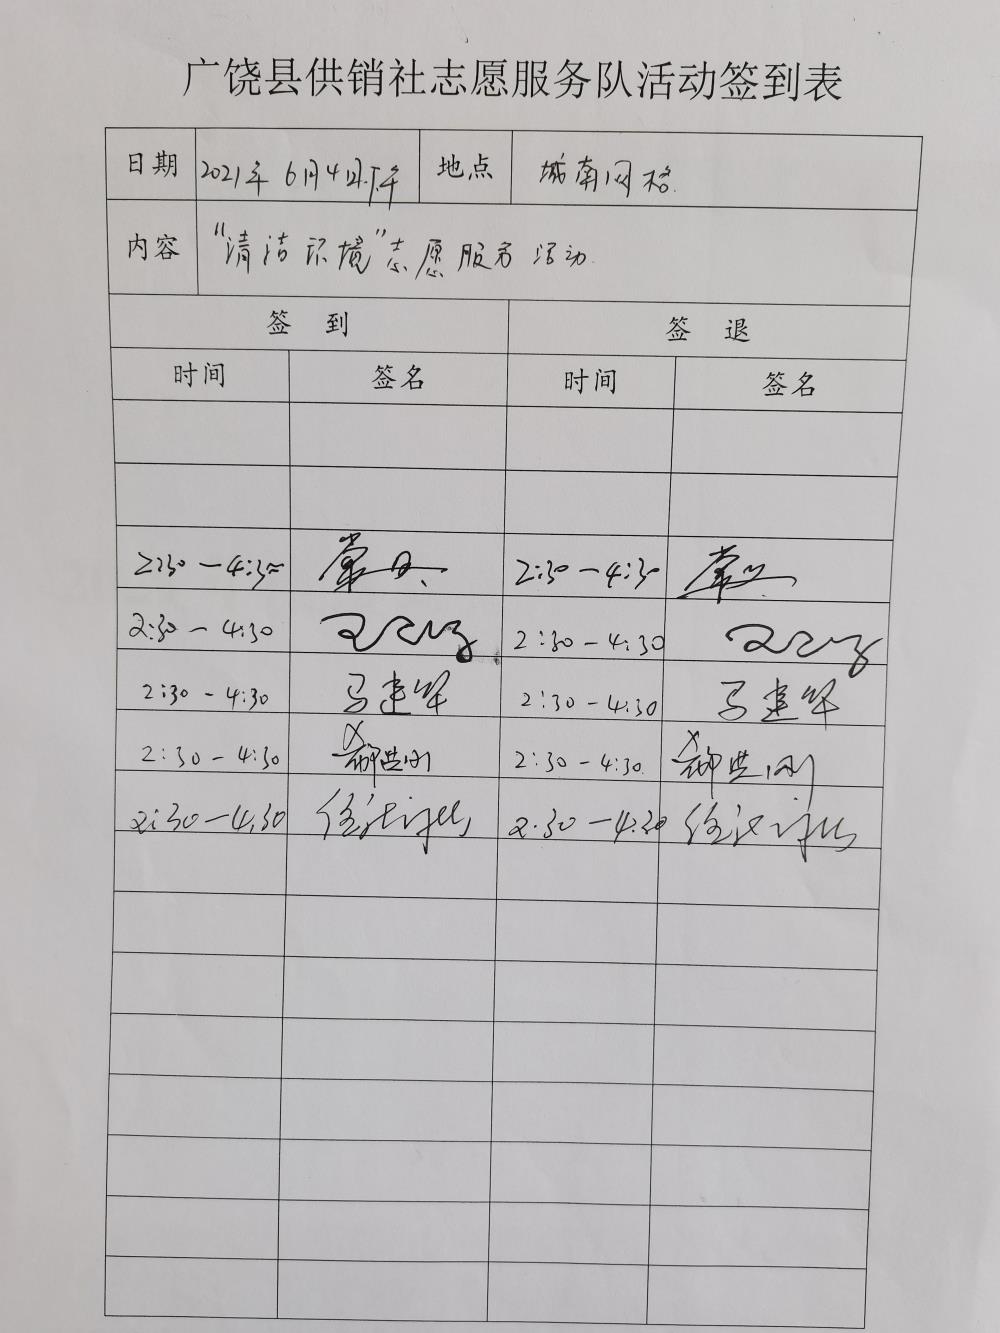 广饶县供销社志愿服务队活动签到表
日期 2021年6月4日下午 地点 城南网格
内容 “清洁环境”志愿服务活动
签 到 签 退
时间 签名 时间 签名
2:30-4:30 2:30-4:30
2:30-4:30 2:30-4:30
2:30-4:30 马建华 2:30-4:30 马建华
2:30-4:30 2:30-4:30
2:30-4:30 2:30-4:30